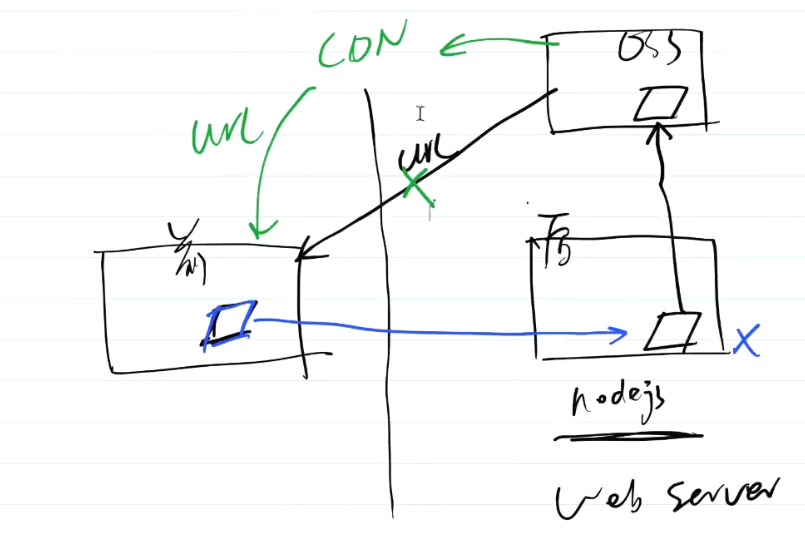 CDN
OSS
url
url
nodejs
Web server